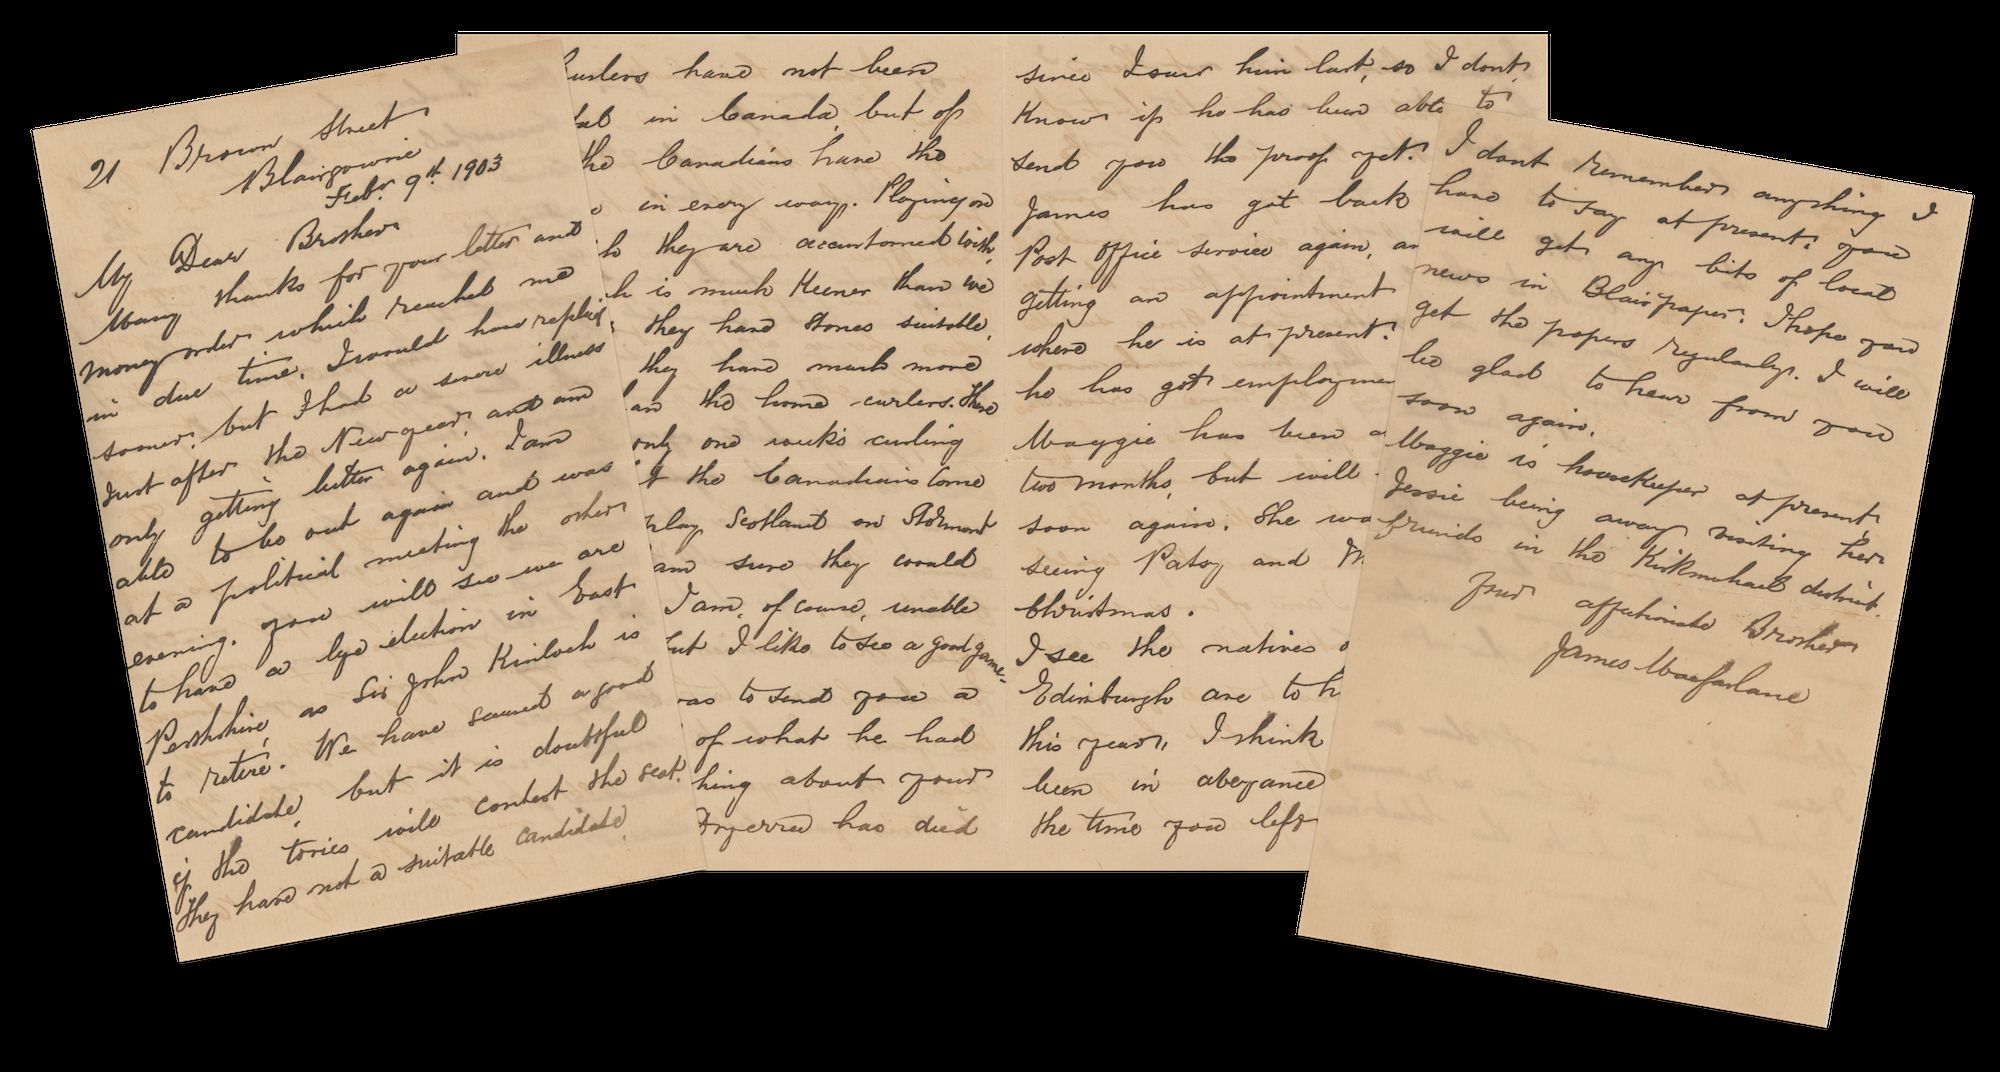 21 Brown Street
Blairgowrie
Feby. 9th 1903
My Dear Brother
Many thanks for your letter and
money order which reached me
in due time. I would have replied
sooner, but I had a severe illness
just after the New year, and am
only getting better again. I am
able to be out again and was
at a political meeting the other
evening. You will see we are
to have a bye election in East
Perthshire, as Sir John Kinloch is
to retire. We have secured a good
candidate, but it is doubtful
if the tories will contest the seat.
They have not a suitable candidate
curlers have not been
in Canada, but of
the Canadians have the
in every way. Playing on
they are accustomed with,
is much Keener than we
they have stones suitable,
they have much more
the home curlers. There
only one week's curling
the Canadians come
play Scotland on Stormont
am sure they could
I am, of course, unable
but I like to see a good game.
to send you a
of what he had
about your
has died
since I saw him last, so I dont
Know if he has been able to
send you the proof yet.
James has got back
Post Office service again,
getting an appointment
where he is at present.
he has got
Maggie has been
two months, but will
soon again. She
seeing Patsy and
Christmas.
I see the natives
Edinburgh are to
this year, I think
been in abeyance
the time you left
I dont remember anything I
have to say at present. You
will get any bits of local
news in Blair paper. I hope you
get the papers regularly. I will
be glad to hear from you
soon again.
Maggie is housekeeper at present
Jessie being away visiting her
friends in the Kirkmichael district.
Your affectionate Brother
James Macfarlane